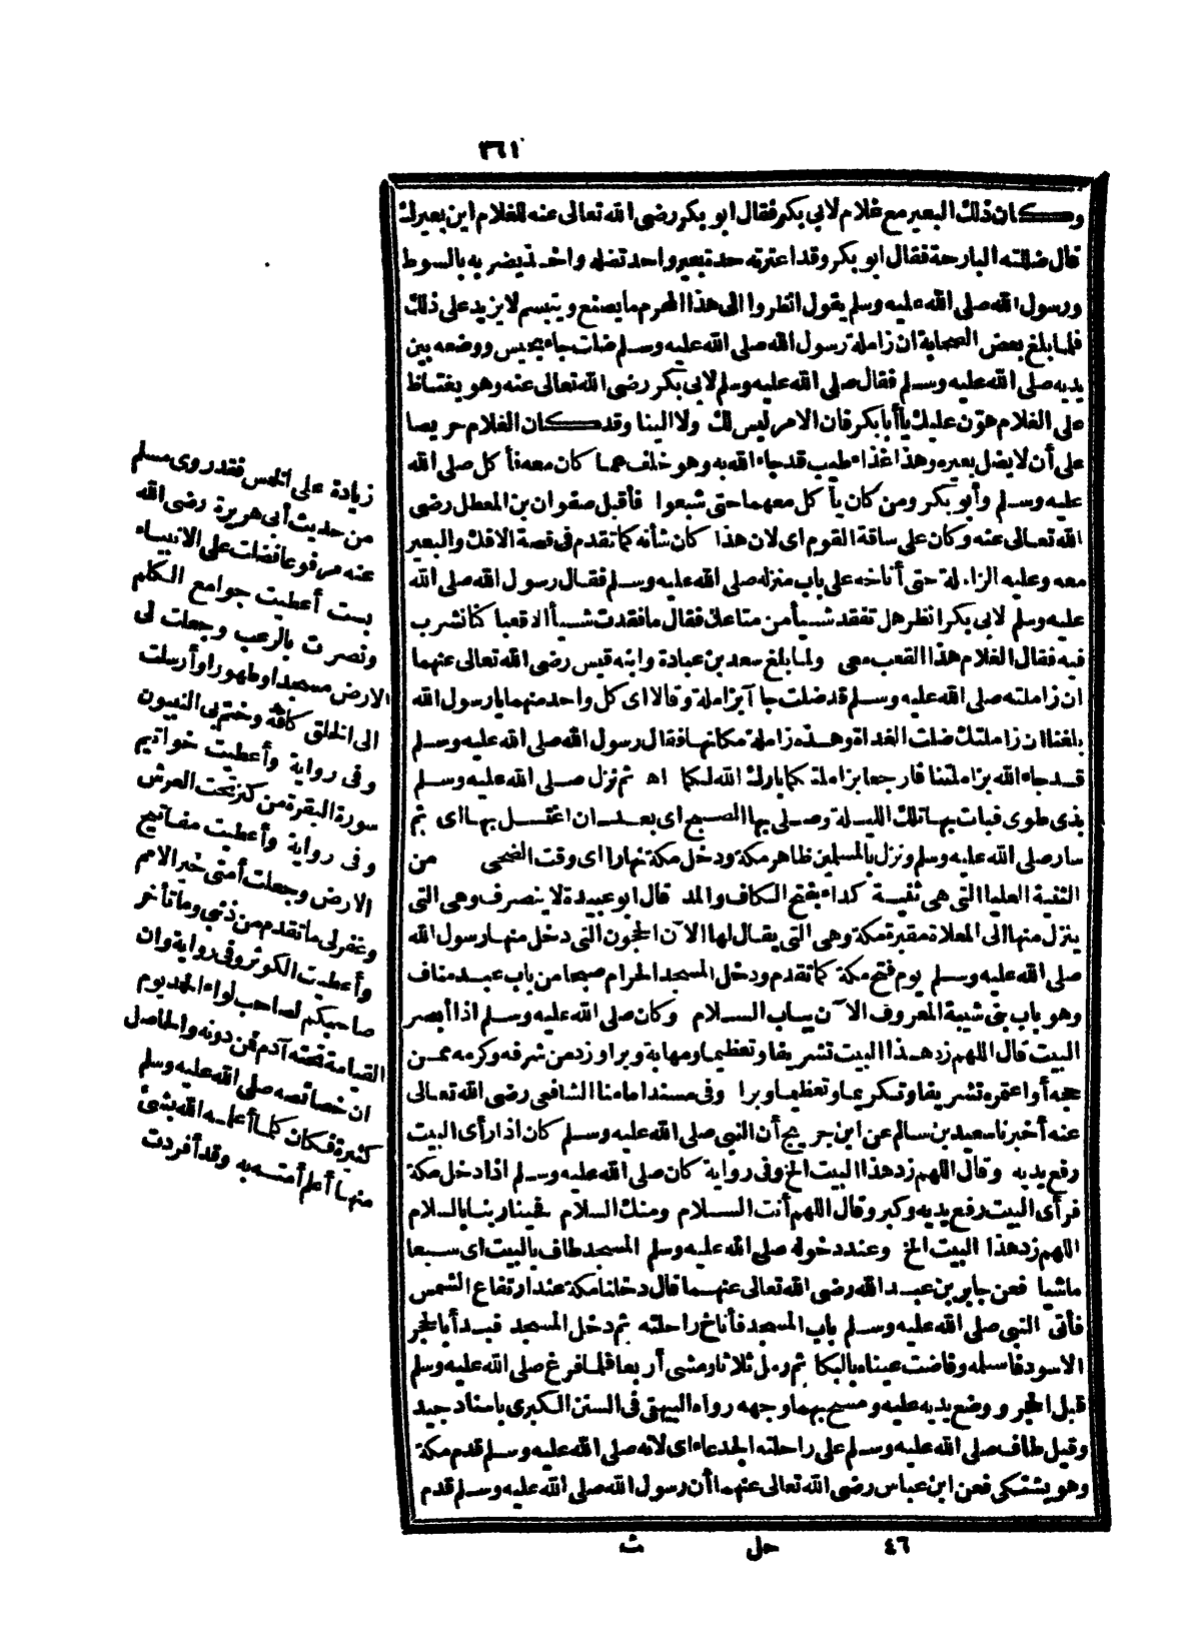 ٣٦١
وكان ذلك البعير مع غلام لابي بكر فقال ابو بكر رضى الله تعالى عنه للغلام اين بعيرك
قال ضللته البارحة فقال ابو بكر وقد اعترته حدة بعير واحد تضله واخذ يضربه بالسوط
ورسول الله صلى الله عليه وسلم يقول انظروا الى هذا المحرم ما يصنع ويتبسم لا يزيد على ذلك
فلما بلغ بعض الصحابة ان زاملة رسول الله صلى الله عليه وسلم ضلت جاء بحيس ووضعه بين
يديه صلى الله عليه وسلم فقال صلى الله عليه وسلم لابى بكر رضى الله تعالى عنه وهو يغتاظ
على الغلام هوّن عليك يا أبا بكر فان الامر ليس لك ولا الينا وقد كان الغلام حريصا
على أن لا يضل بعيره وهذا غذاء طيب قد جاء الله به وهو خلف عما كان معه فأكل صلى الله
عليه وسلم وأبو بكر ومن كان يأكل معهما حتى شبعوا فأقبل صفوان بن المعطل رضى
الله تعالى عنه وكان على ساقة القوم اى لان هذا كان شأنه كما تقدم فى قصة الافك والبعير
معه وعليه الزاملة حتى أناخه على باب منزله صلى الله عليه وسلم فقال رسول الله صلى الله
عليه وسلم لابى بكر انظر هل تفقد شيأ من متاعك فقال ما فقدت شيأ الا قعبا كنا نشرب
فيه فقال الغلام هذا القعب معى ولما بلغ سعد بن عبادة وابنه قيس رضى الله تعالى عنهما
ان زاملته صلى الله عليه وسلم قد ضلت جاآ بزاملة وقالا اى كل واحد منهما يا رسول الله
بلغنا ان زاملتك ضلت الغداة وهذه زاملة مكانها فقال رسول الله صلى الله عليه وسلم
قد جاء الله بزاملتنا فارجعا بزاملتكما بارك الله لكما اه ثم نزل صلى الله عليه وسلم
بذى طوى فبات بها تلك الليلة وصلى بها الصبح اى بعد ان اغتسل بها اى ثم
سار صلى الله عليه وسلم ونزل بالمسلمين ظاهر مكة ودخل مكة نهارا اى وقت الضحى من
الثنية العليا التى هى ثنية كداء بفتح الكاف والمد قال ابو عبيدة لا ينصرف وهى التى
ينزل منها الى المعلاة مقبرة مكة وهى التى يقال لها الآن الحجون التى دخل منها رسول الله
صلى الله عليه وسلم يوم فتح مكة كما تقدم ودخل المسجد الحرام صبحا من باب عبد مناف
وهو باب بنى شيبة المعروف الآن بباب السلام وكان صلى الله عليه وسلم اذا أبصر
البيت قال اللهم زد هذا البيت تشريفا وتعظيما ومهابة وبرا وزد من شرفه وكرمه ممن
حجه أو اعتمره تشريفا وتكريما وتعظيما وبرا وفى مسند امامنا الشافعى رضى الله تعالى
عنه أخبرنا سعيد بن سالم عن ابن جريج أن النبى صلى الله عليه وسلم كان اذا رأى البيت
رفع يديه وقال اللهم زد هذا البيت الخ وفى رواية كان صلى الله عليه وسلم اذا دخل مكة
فرأى البيت رفع يديه وكبر وقال اللهم أنت السلام ومنك السلام فحينا ربنا بالسلام
اللهم زد هذا البيت الخ وعند دخوله صلى الله عليه وسلم المسجد طاف بالبيت اى سبعا
ماشيا فعن جابر بن عبد الله رضى الله تعالى عنهما قال دخلنا مكة عند ارتفاع الشمس
فأتى النبى صلى الله عليه وسلم باب المسجد فأناخ راحلته ثم دخل المسجد فبدأ بالحجر
الاسود فاستلمه وفاضت عيناه بالبكا ثم رمل ثلاثا ومشى أربعا فلما فرغ صلى الله عليه وسلم
قبل الحجر ووضع يديه عليه ومسح بهما وجهه رواه البيهقى فى السنن الكبرى باسناد جيد
وقيل طاف صلى الله عليه وسلم على راحلته الجدعاء اى لانه صلى الله عليه وسلم قدم مكة
وهو يشتكى فعن ابن عباس رضى الله تعالى عنهما أن رسول الله صلى الله عليه وسلم قدم
زيادة على الخمس فقد روى مسلم
من حديث أبى هريرة رضى الله
عنه مرفوعا فضلت على الانبياء
بست أعطيت جوامع الكلم
ونصرت بالرعب وجعلت لى
الارض مسجدا وطهورا وأرسلت
الى الخلق كافة وختم بى النبيون
وفى رواية وأعطيت خواتيم
سورة البقرة من كنز تحت العرش
وفى رواية وأعطيت مفاتيح
الارض وجعلت أمتى خير الامم
وغفر لى ما تقدم من ذنبى وما تأخر
وأعطيت الكوثر وفى رواية وان
صاحبكم لصاحب لواء الحمد يوم
القيامة تحته آدم فمن دونه والحاصل
ان خصائصه صلى الله عليه وسلم
كثيرة فكان كلما أعلمه الله بشئ
منها أعلم أمته به وقد أفردت
٤٦ حل ث